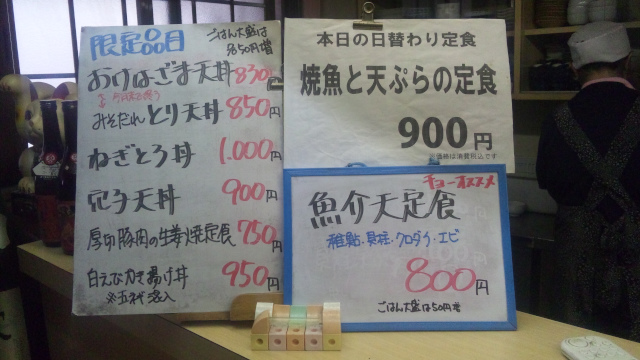 限定品目
ごはん大盛は
50円増
おけはざま天丼 830
みそだれとり天丼 850円
ねぎとろ丼 1.000円
穴子天丼 900円
厚切豚肉の生姜焼定食 750円
白えびかき揚げ丼 950円
本日の日替わり定食
焼魚と天ぷらの定食
900円
※価格は消費税込です
チョーオススメ
魚介天定食
稚鮎.貝柱.クロダイ.エビ
800円
ごはん大盛は50円増